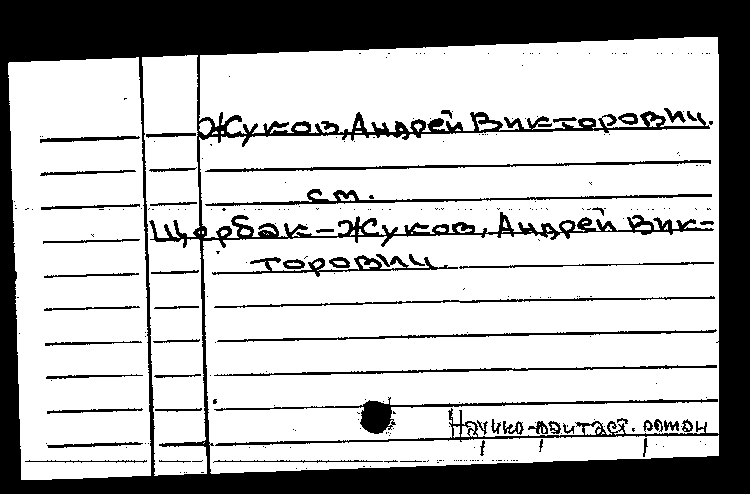 Жуков, Андрей Викторович.
см.
Щербак-Жуков, Андрей Вик-
торович.
Научно-фантаст. роман